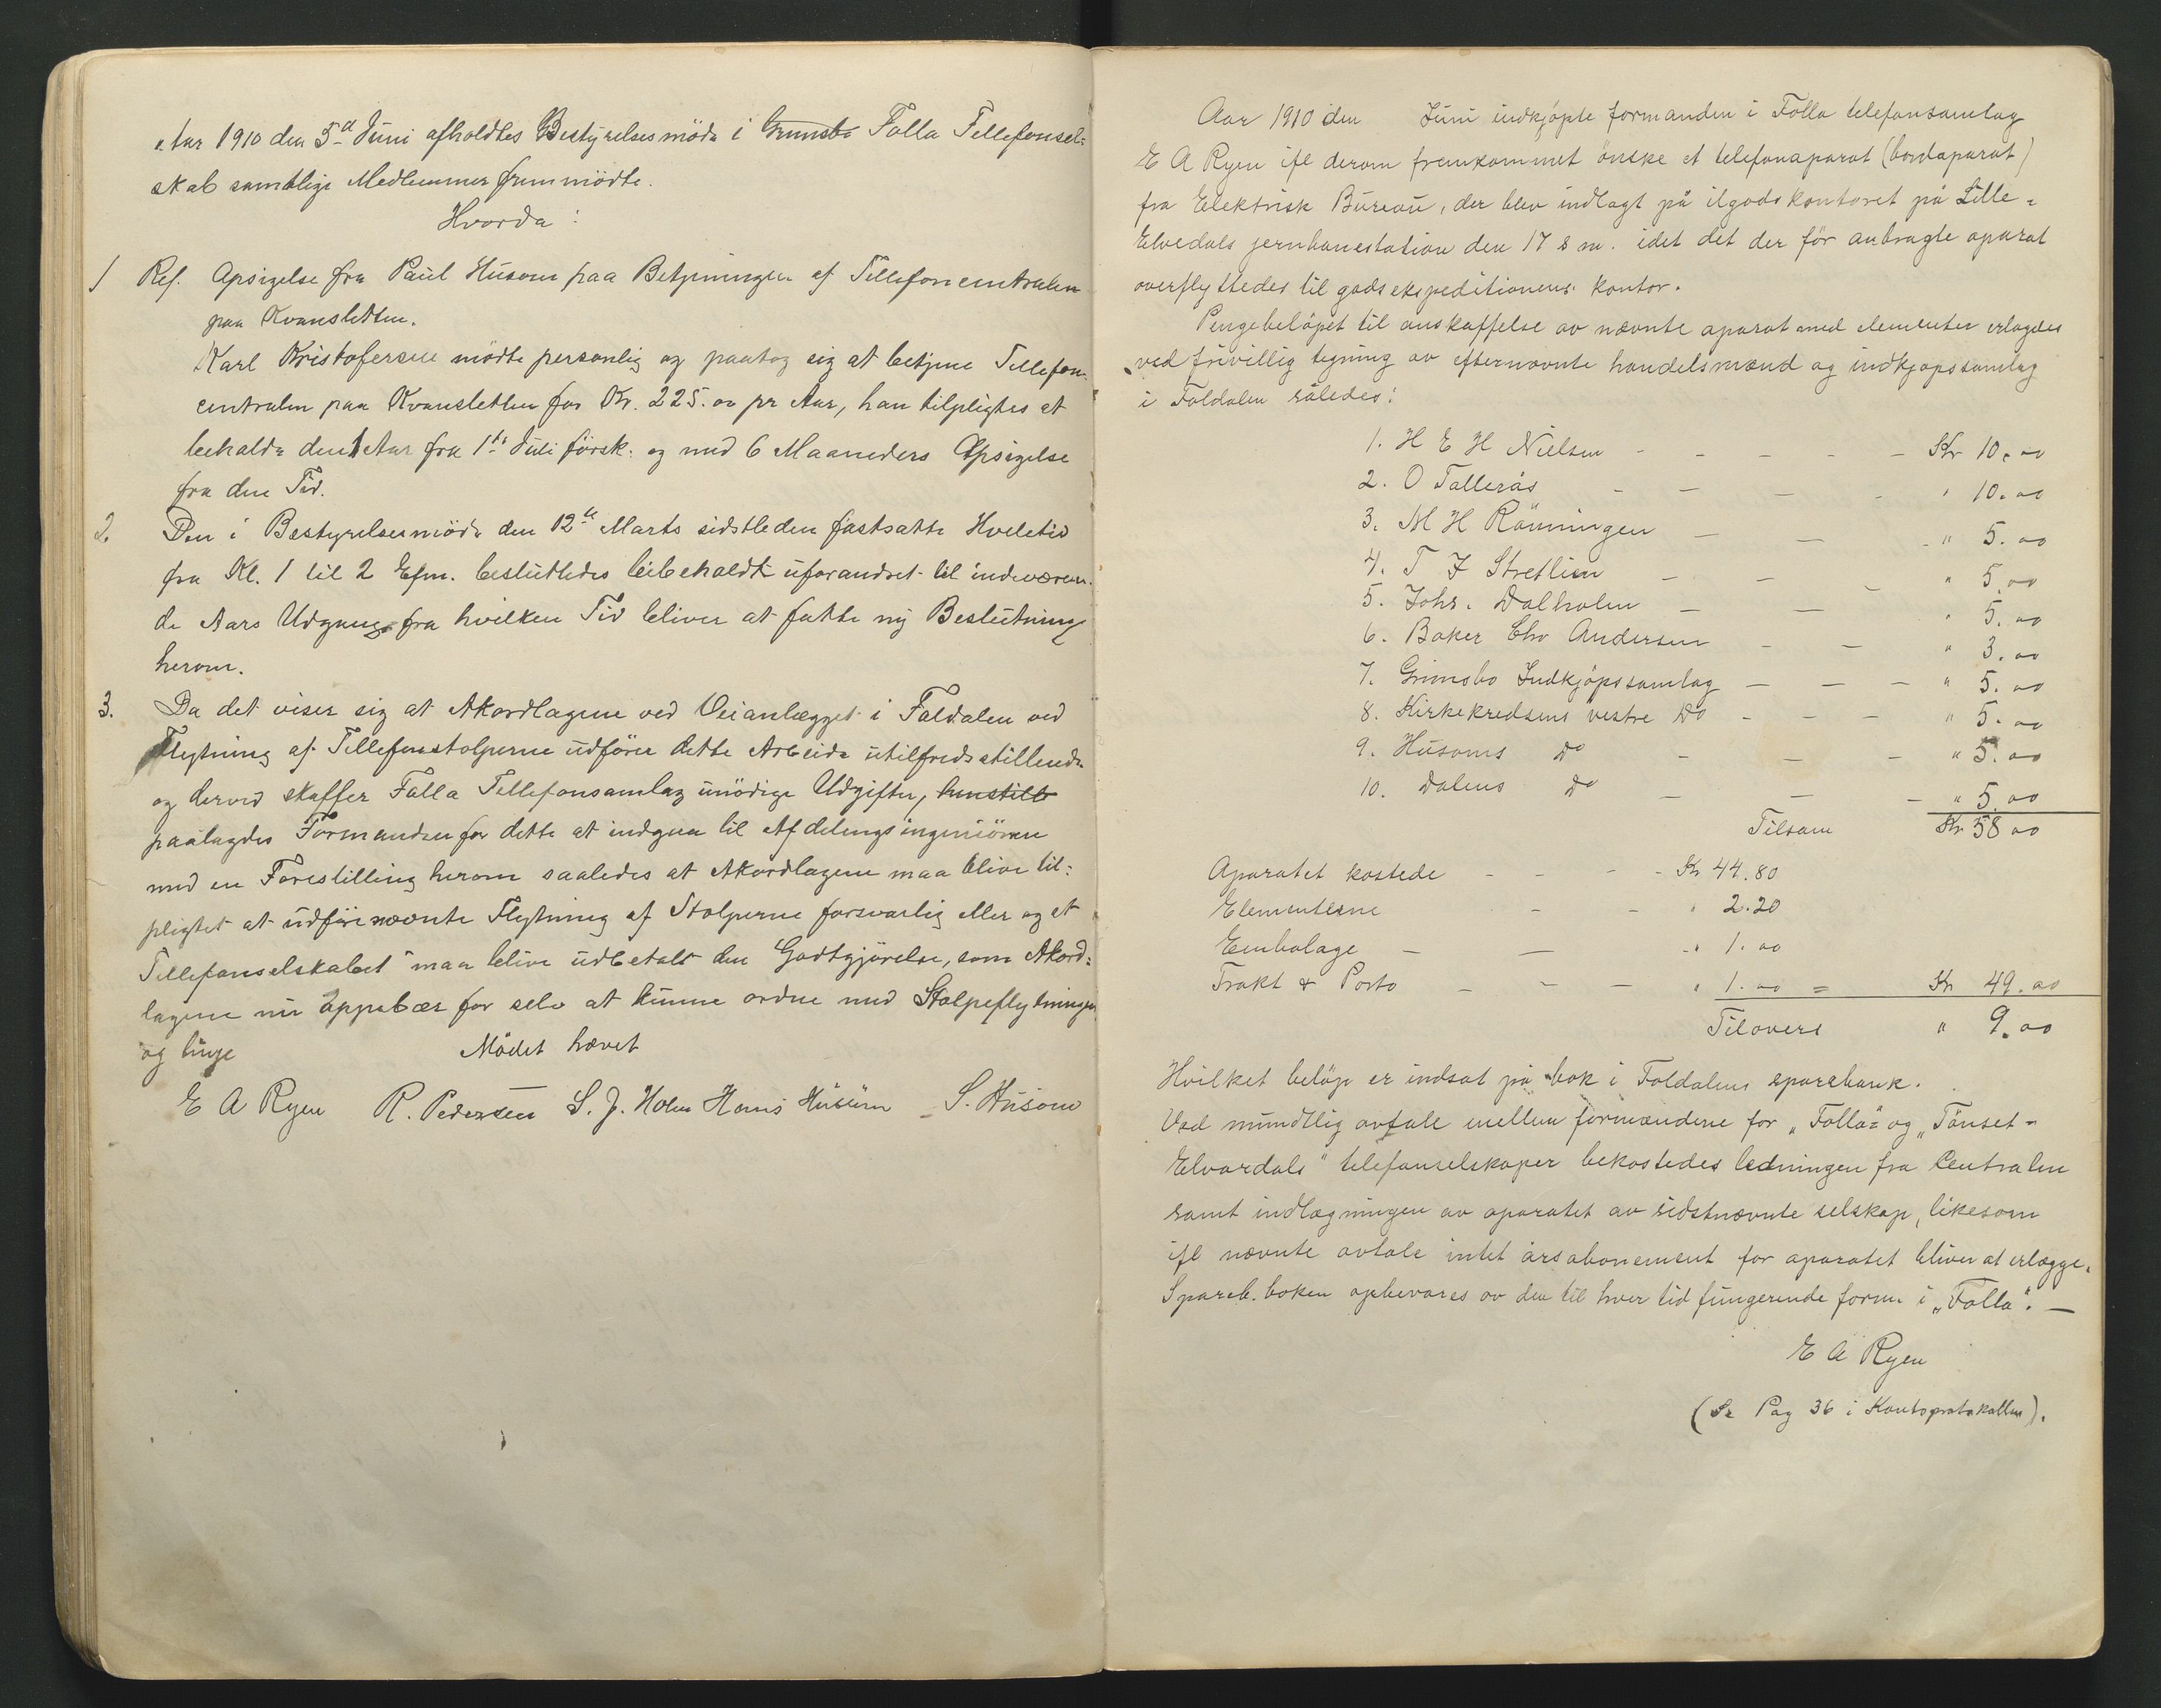 Aar 1910 den 5d Juni afholdtes Bestyrelsesmöde i Grimsbo Folla Tellefonsel=
skab samtlige Medlemmer fremmödte.
Hvorda:
1 Ref. Opsigelse fra Paul Husom paa Betjeningen af Tellefoncentralen
paa Kvansletten.
Karl Kristofersen mödte personlig og paatog sig at betjene Tellefon-
centralen paa Kvansletten for Kr. 225.00 pr Aar, han tilpligtes at
beholde den 1 Aar fra 1ste Juli förstk. og med 6 Maaneders Opsigelse
fra den Tid.
2. Den i Bestyrelsesmöde den 12te Marts sidstleden fastsatte Hviletid
fra Kl. 1 til 2 Efm. besluttedes bibeholdt uforandret til indeværen-
de Aars Udgang, fra hvilken Tid bliver at fatte ny Beslutning
herom.
3. Da det viser sig at Akordlagene ved Veianlægget i Foldalen ved
Flytning af Tellefonstolperne udförer dette Arbeide utilfredsstillende
og derved skaffer Folla Tellefonsamlag unödige Udgifter, henstill
paalagdes Formanden for dette at indgaa til Afdelingsingeniören
med en Forestilling herom saaledes at Akordlagene maa blive til=
pligtet at udföre nævnte Flytning af Stolperne forsvarlig eller og at
Tellefonselskabet maa blive udbetalt den Godtgjörelse, som Akord=
lagene nu oppebær for selv at kunne ordne med Stolpeflytningen
og linje
Mödet hævet
E A Ryen R. Pedersen S. J. Holm Hans Husum S. Husom
Aar 1910 den Juni indkjøpte formanden i Folla telefonsamlag
E A Ryen ifl derom fremkommet ønske et telefonaparat (bordaparat)
fra Elektrisk Bureau, der blev indlagt på ilgodskontoret på Lille=
Elvedals jernbanestation den 17 s m. idet det der før anbragte aparat
overflyttedes til godsekspeditionens kontor.
Pengebeløpet til anskaffelse av nævnte aparat med elementer erlagdes
ved frivillig tegning av efternævnte handelsmænd og indkjøpssamlag
i Foldalen således:
1. H E H Nielsen - - - - - Kr 10.00
2. O Tallerås - - - - " 10.00
3. M H Rönningen - - - " 5.00
4. T J Stretlien - - - " 5.00
5. Johs. Dalholen - - - " 5.00
6. Baker Chr Andersen - - " 3.00
7. Grimsbo Indkjøpssamlag - - - " 5.00
8. Kirkekredsens vestre Do - - - " 5.00
9. Husoms Do - - - " 5.00
10. Dalens Do - - - " 5.00
Tilsam Kr 58 00
Aparatet kostede - - - - Kr 44.80
Elementerne - - " 2.20
Embalage - - - " 1.00
Frakt & Porto - - - " 1.00 = Kr 49.00
Tilovers " 9.00
Hvilket beløp er indsat på bok i Foldalens sparebank.
Ved mundtlig avtale mellem formændene for „Folla" og „Tönset-
Elverdals" telefonselskaper bekostedes ledningen fra Centralen
samt indlægningen av aparatet av sidstnævnte selskap, likesom
ifl nævnte avtale intet årsabonement for aparatet bliver at erlægge.
Spareb. boken opbevares av den til hver tid fungerende form i „Folla". —
E A Ryen
(Se Pag 36 i Kontoprotokollen).